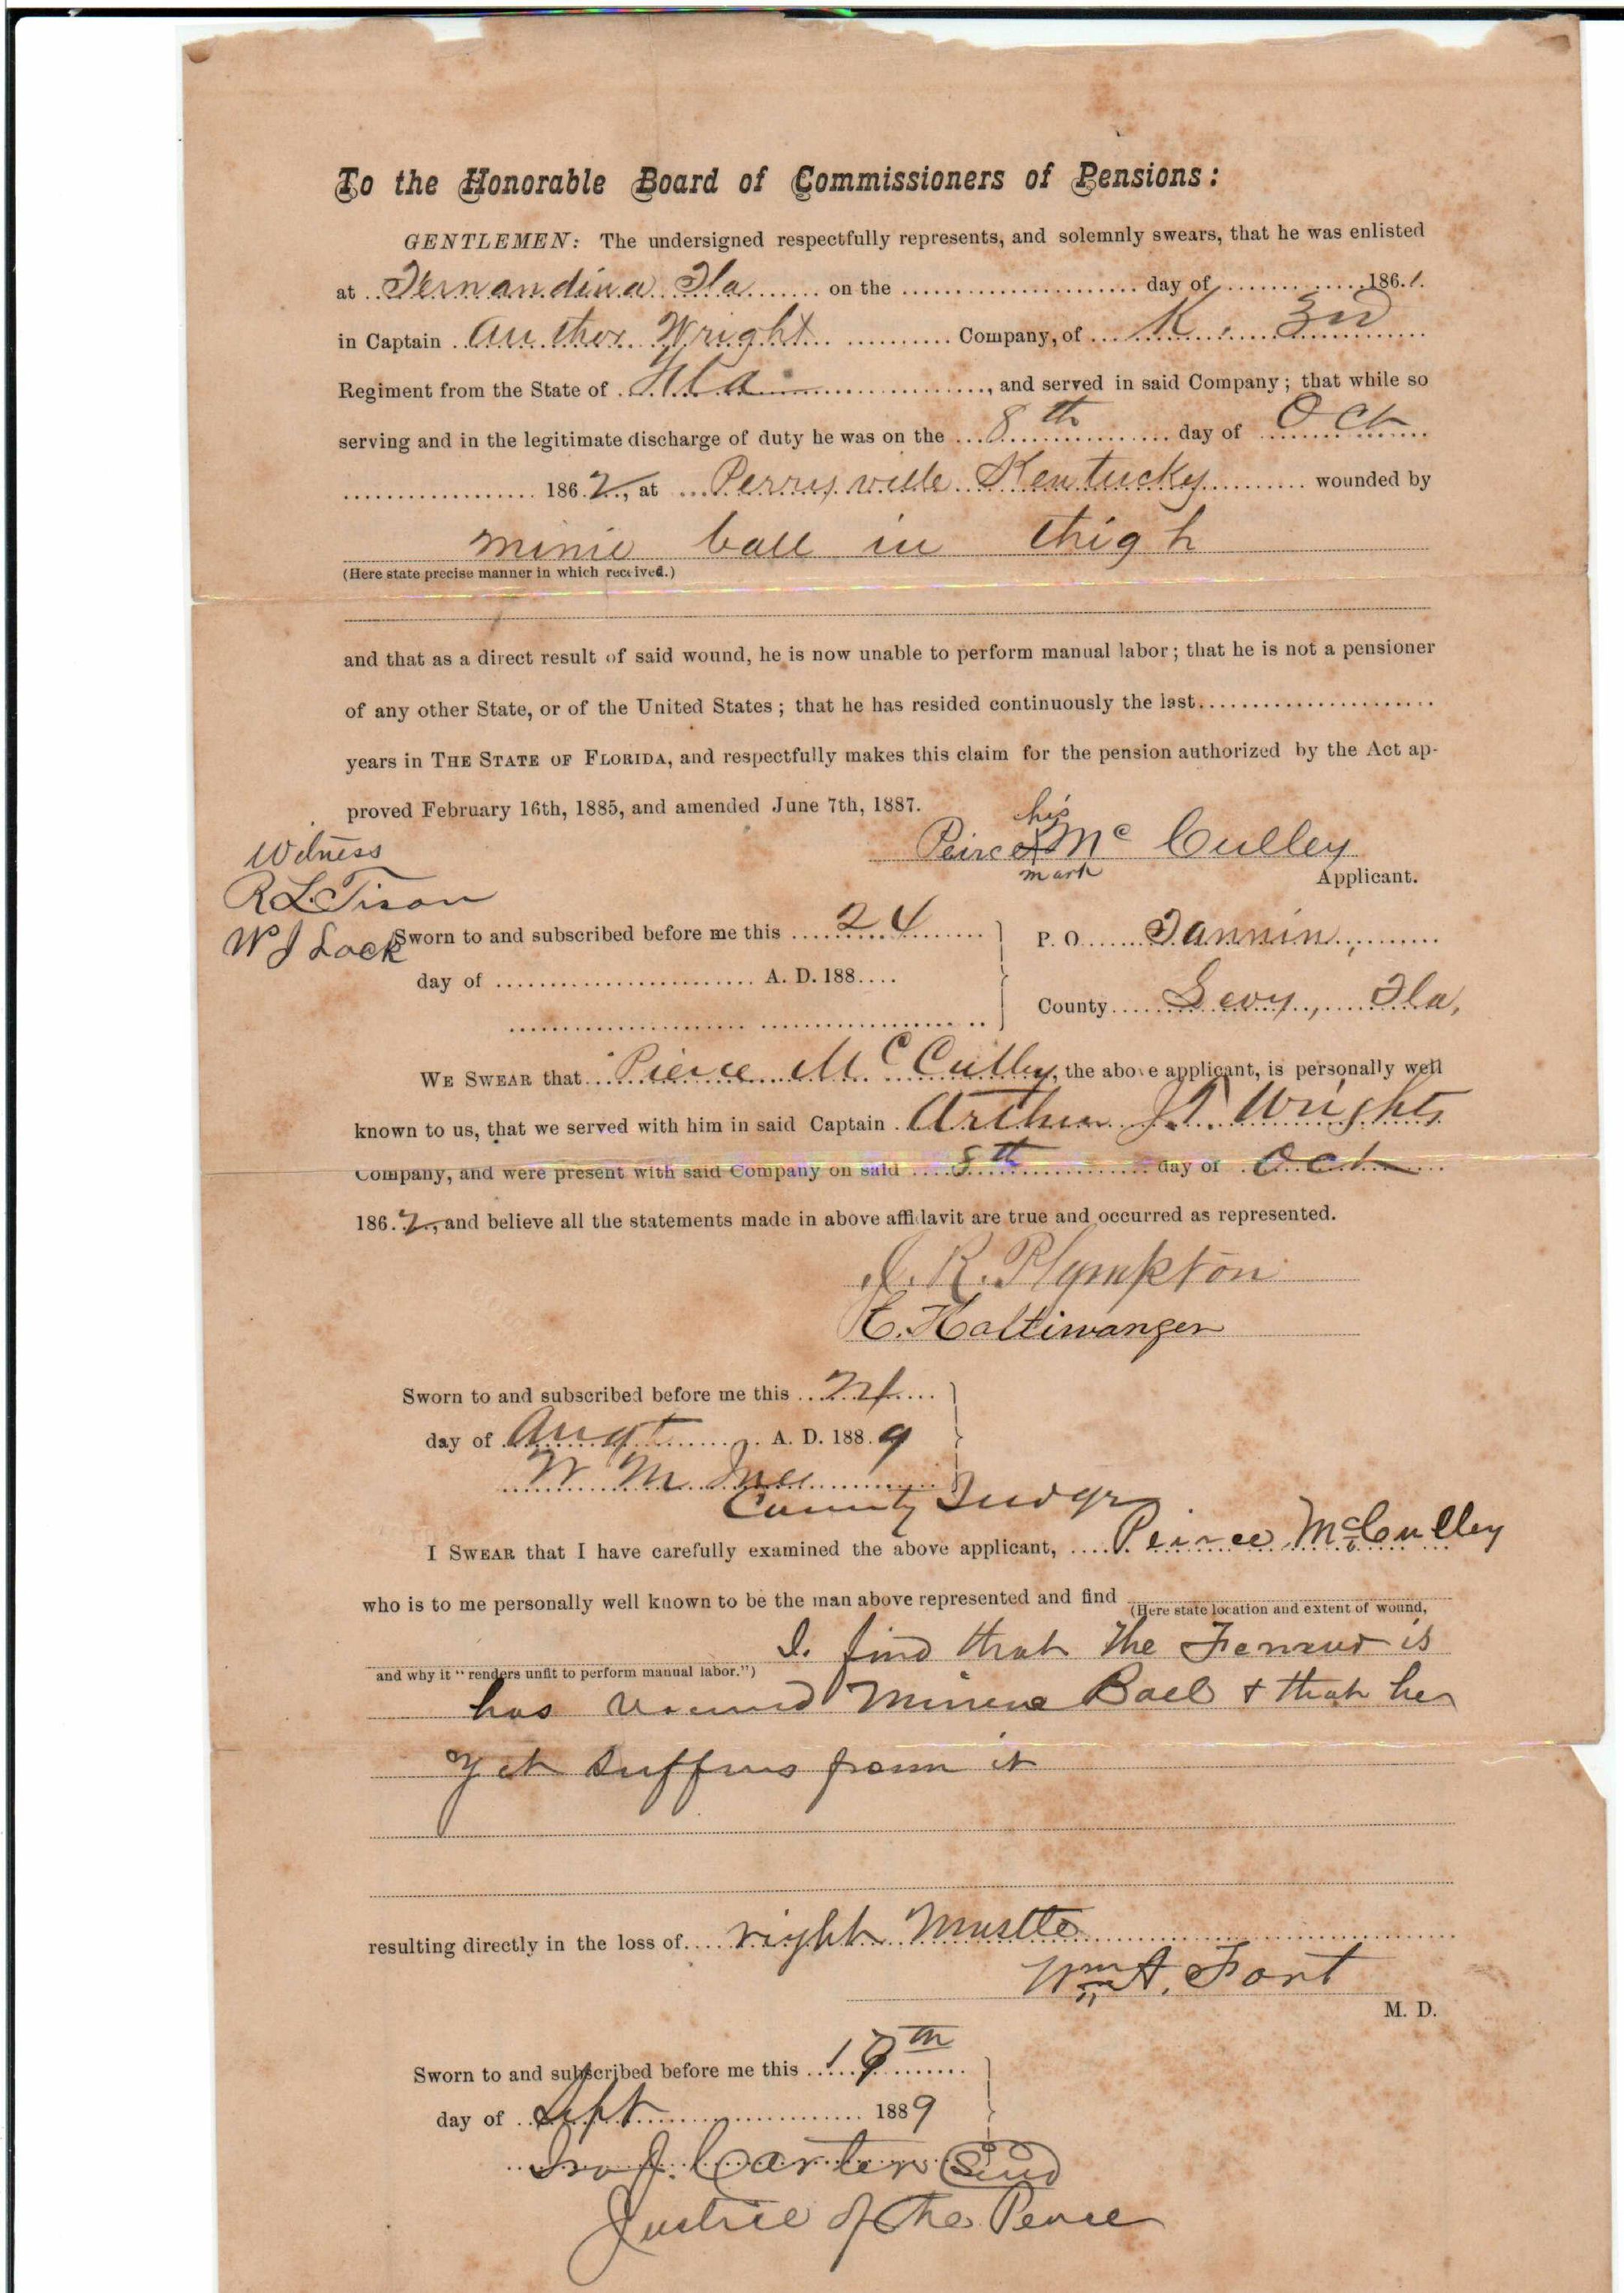 To the Honorable Board of Commissioners of Pensions:
GENTLEMEN: The undersigned respectfully represents, and solemnly swears, that he was enlisted
at Fernandina Fla on the day of 1861.
in Captain Auther Wright Company, of K, 3rd
Regiment from the State of Fla, and served in said Company; that while so
serving and in the legitimate discharge of duty he was on the 8th day of Oct
1862, at Perrysville Kentucky wounded by
minie ball in thigh
(Here state precise manner in which received.)
and that as a direct result of said wound, he is now unable to perform manual labor; that he is not a pensioner
of any other State, or of the United States; that he has resided continuously the last
years in THE STATE OF FLORIDA, and respectfully makes this claim for the pension authorized by the Act ap-
proved February 16th, 1885, and amended June 7th, 1887.
his
Witness
Peirce X Mc Culley
mark
Applicant.
R L Tison
W J Lock
Sworn to and subscribed before me this 24
P. O. Fannin,
day of A. D. 188
County Levy, Fla,
WE SWEAR that Pierce McCulley, the above applicant, is personally well
known to us, that we served with him in said Captain Arthur J.T. Wrights
Company, and were present with said Company on said 8th day of Oct
1862, and believe all the statements made in above affidavit are true and occurred as represented.
J. R. Plympton
H. Haltiwanger
Sworn to and subscribed before me this 24
day of Augt A. D. 1889
W M
County Judge
I SWEAR that I have carefully examined the above applicant, Peirce McCulley
who is to me personally well known to be the man above represented and find
(Here state location and extent of wound,
I find that the is
and why it "renders unfit to perform manual labor.")
has Ball & that he
yet suffers from it
resulting directly in the loss of right
Wm A. Fort
M. D.
Sworn to and subscribed before me this
day of Sept 1889
J. Carter
Justice of the Peace